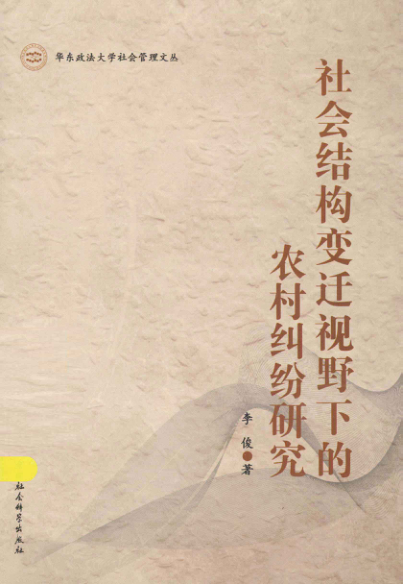 华东政法大学社会管理文丛
社会结构变迁视野下的
农村纠纷研究
李俊●著
社会科学出版社